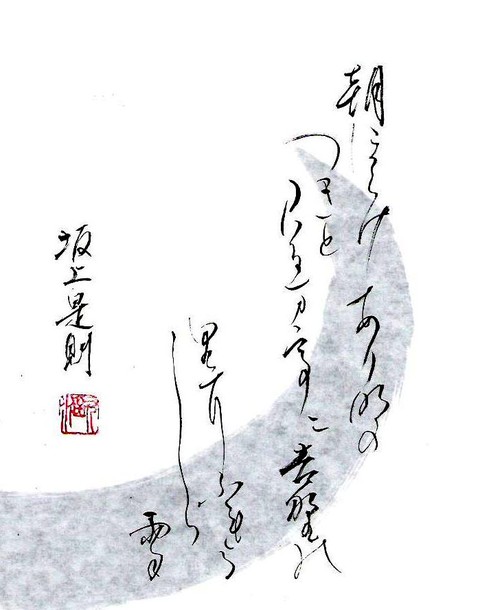 朝ほらけあり明の
つきと
みるまてに吉野の
里にふれる
しら
雪
坂上是則